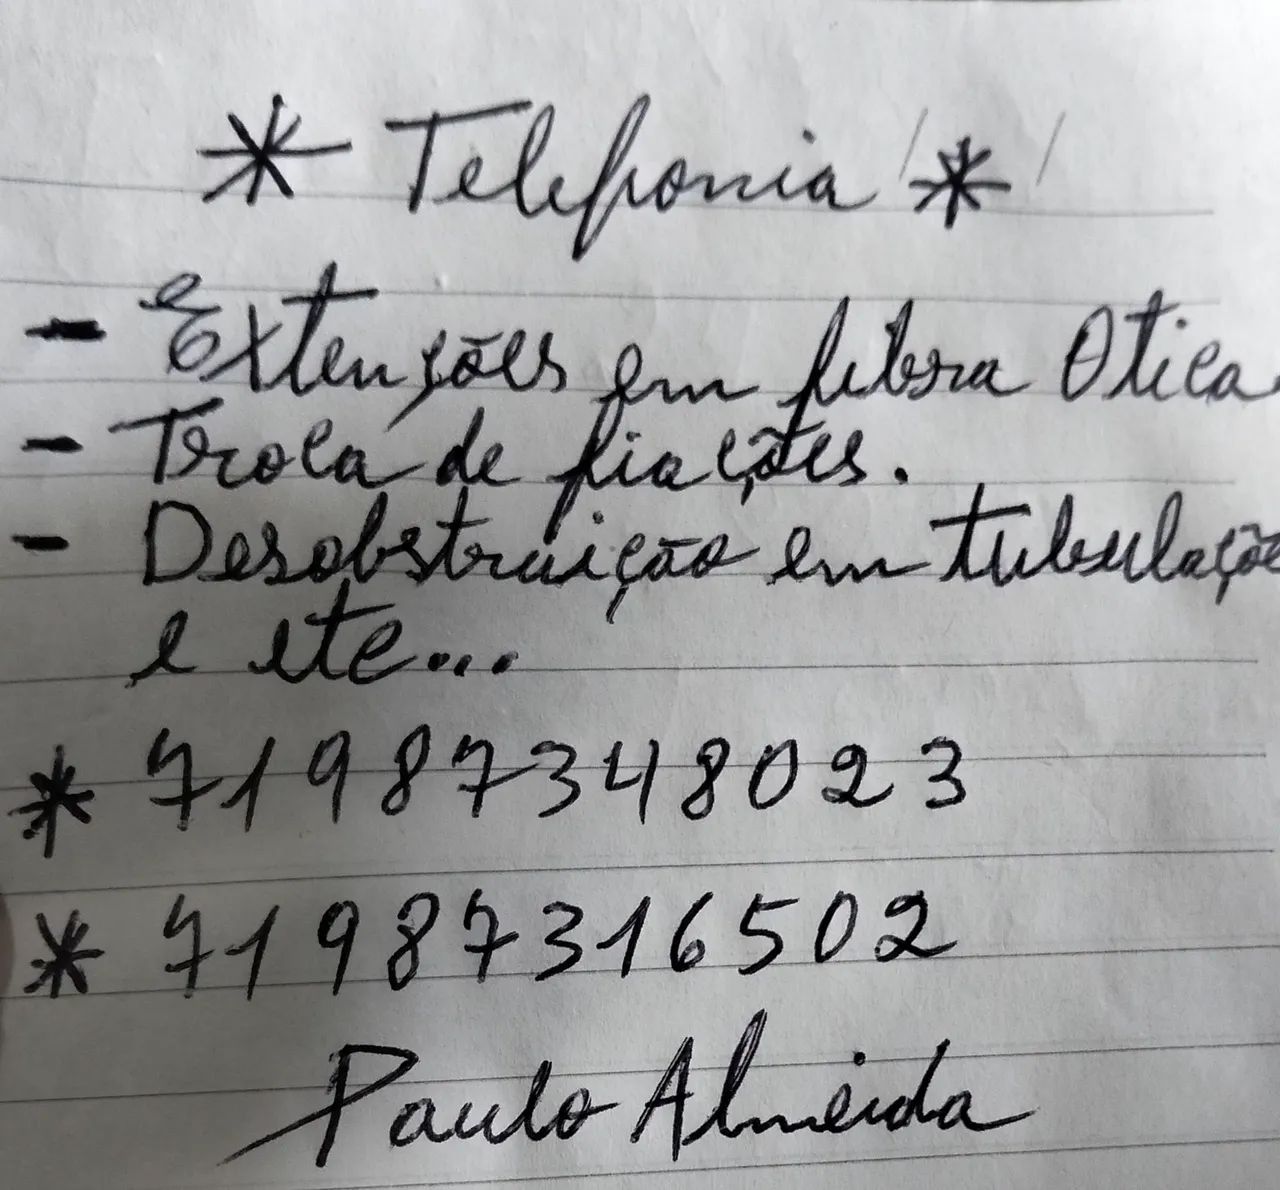 * Telefonia *
- Extenções em fibra Otica
- Troca de fiações.
- Desobstruição em tubulaçõe
e etc...
* 71987348023
* 71987316502
Paulo Almeida